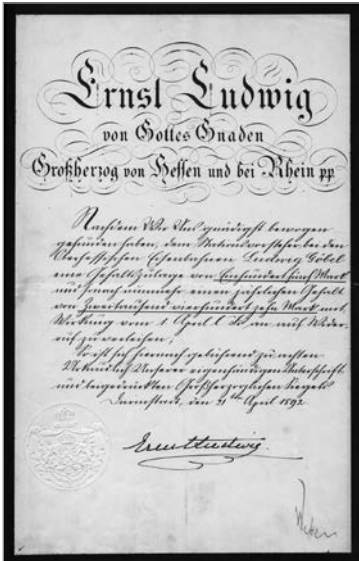 Ernst Ludwig
von Gottes Gnaden
Großherzog von Hessen und bei Rhein pp
Nachdem Wir Uns gnädigst bewogen
gefunden haben, dem Stationsvorsteher bei den
Oberhessischen Eisenbahnen Ludwig Göbel
eine Gehaltszulage von Einhundert fünf Mark
und hiernach nunmehr einen jährlichen Gehalt
von Zweitausend vierhundert zehn Mark mit
Wirkung vom 1 April l. Js. an auf Wider-
ruf zu verleihen.
So ist sich hiernach gebührend zu achten.
Urkundlich Unserer eigenhändigen Unterschrift
und beigedrückten Großherzoglichen Siegels
Darmstadt, den 21ten April 1892
Ernst Ludwig.